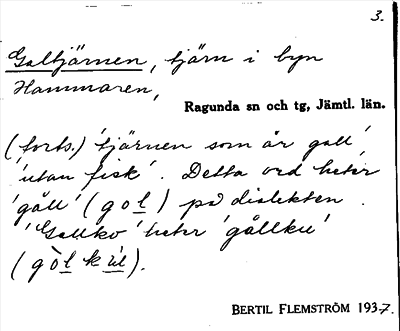 3.
Galtjärnen, tjärn i byn
Hammaren,
Ragunda sn och tg, Jämtl. län.
(forts.) 'tjärnen som är gall'
'utan fisk'. Detta ord heter
'gåll' (gol) på dialekten.
'Gallko' heter 'gållku'
(gòl kúl).
BERTIL FLEMSTRÖM 1937.